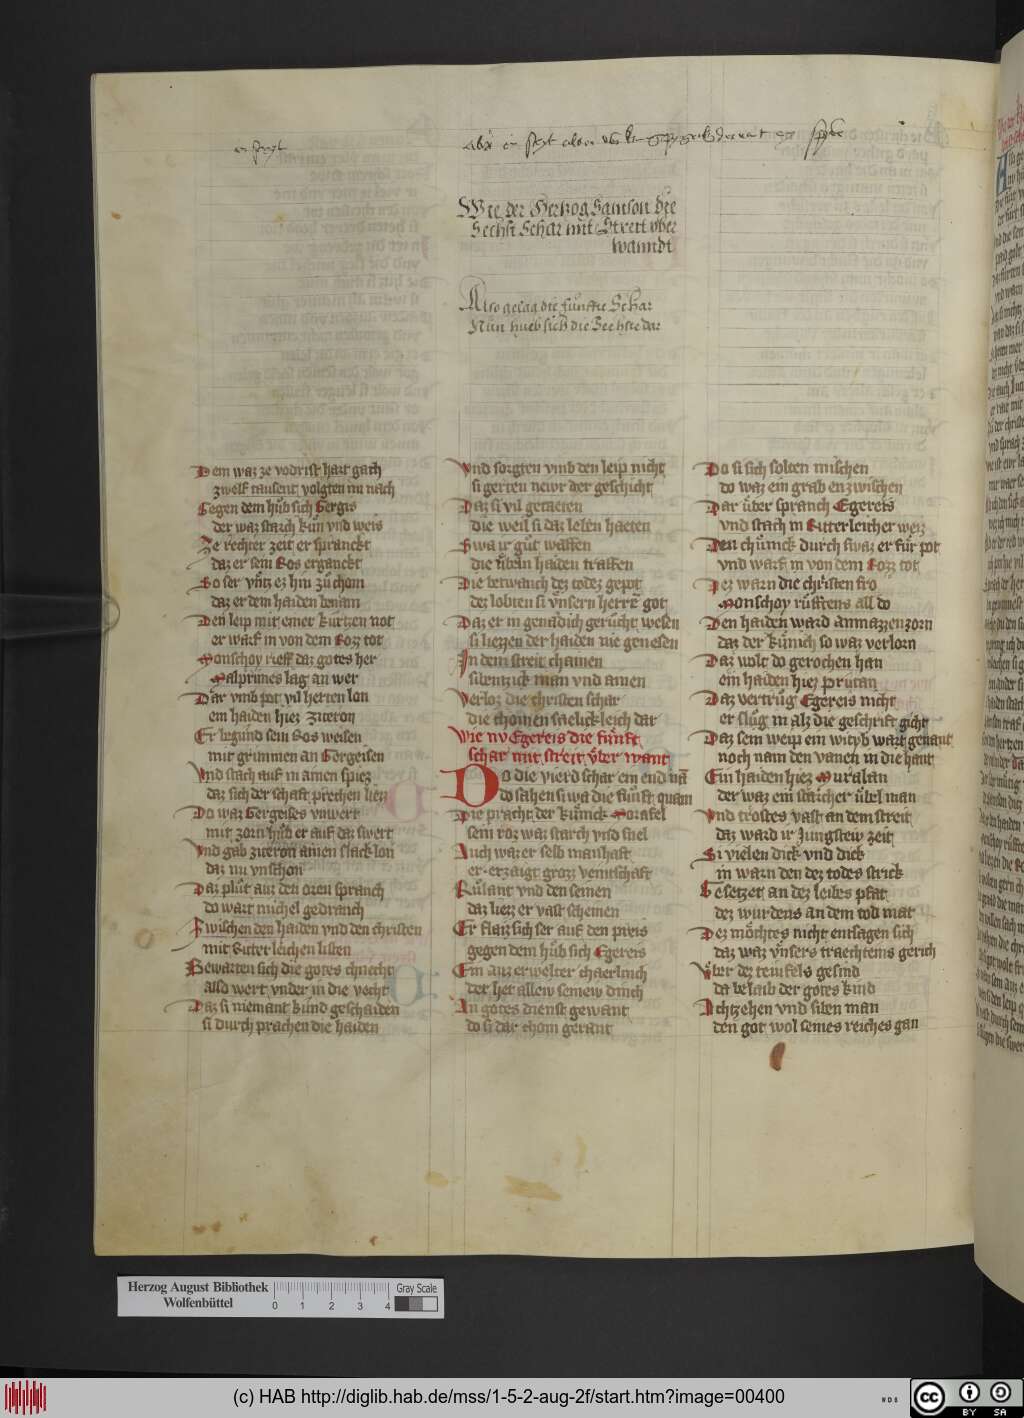 Wie der Hertzog Samson die
Sechst Schar mit Streit vber
wanndt
Also gelag die funffte Schar
Nun hueb sich die Sechste dar
Dem waz ze vodrist hart gach
zwelf tausent volgten im nach
Gegen dem hůb sich Gergis
der waz starch kün vnd weis
Ze rechter zeit er spranckt
daz er sein Ros erganckt
So ser vntz ez hin zů chom
daz er dem haiden benam
Den leip mit einer kurtzen not
er warf in von dem Rozz tot
Monschoy rieff daz gotes her
Malprimes lag an wer
Dar vmb pot vil herten lon
ein haiden hiez Ziteron
Er begund sein Ros weisen
mit grimmen an Gergeisen
Vnd stach auf in ainen spiez
daz sich der schaft prechen liez
Do waz Gergeises vnwert
mit zorn hůb er auf daz swert
Vnd gab ziteron ainen slack lon
daz im vnschon
Daz plůt auz den oren spranch
do wart michel gedranch
Zwischen den haiden vnd den christen
mit Ritterleichen listen
Bewarten sich die gotes chnecht
alld wert vnder in die vecht
Daz si niemant kund geschaiden
si durch prachen die haiden
Vnd sorgten vmb den leip nicht
si gerten newr der geschicht
Daz si vil getaeten
die weil si daz leben haeten
Swa ir gůt waffen
die vbeln haiden traffen
Die betwanch dez todez gepot
dez lobten si vnsern herren got
Daz er in genadich geruͦcht wesen
si liezzen der haiden nie genesen
In dem streit chamen
sibentzick man vnd ainen
Verloz die christen schar
die chomen saelickleich dar
Wie nv Egereis die fünft
schar mit streit vber want
Do die vierd schar ein end nam
do sahen si wa die fünft quam
Die pracht der künick Morafel
sein roz waz starch vnd snel
Auch waz er selb manhaft
er erzaigt grozz ventschaft
Růlant vnd den seinen
daz liezz er vast scheinen
Er flaiz sich ser auf den preis
gegen dem hůb sich Egereis
Ein auzerwelter chaerlinch
der het allew seinew dinch
An gotes dienst gewant
do si dar chom gerant
Do si sich solten mischen
do waz ein grab enzwischen
Dar über spranch Egereis
vnd stach in Ritterleicher weiz
Den chünick durch swaz er für pot
vnd warf in von dem Rozz tot
Dez warn die christen fro
Monschoy růfftens all do
Den haiden ward annazzen zorn
daz der künich so waz verlorn
Daz wolt do gerochen han
ein haiden hiez Prutan
Daz vertrůg Egereis nicht
er slůg in alz die geschrift gicht
Daz sein weip ein wityb wart genant
noch nam den vanen in die hant
Ein haiden hiez Muralan
der waz ein starcher übel man
Vnd trostes vast an dem streit
daz ward ir Jungstew zeit
Si vielen dick vnd dick
in warn den dez todes strick
Gesetzet an dez leibes pfat
dez wurdens an dem tod mat
Dez möchtes nicht entsagen sich
daz waz vnsers traechteins gerich
Vber dez teuifels gesind
da belaib der gotes kind
Achtzehen vnd siben man
den got wol seines reiches gan
Herzog August Bibliothek
Wolfenbüttel
0 1 2 3 4
Gray Scale
(c) HAB http://diglib.hab.de/mss/1-5-2-aug-2f/start.htm?image=00400
cc BY SA